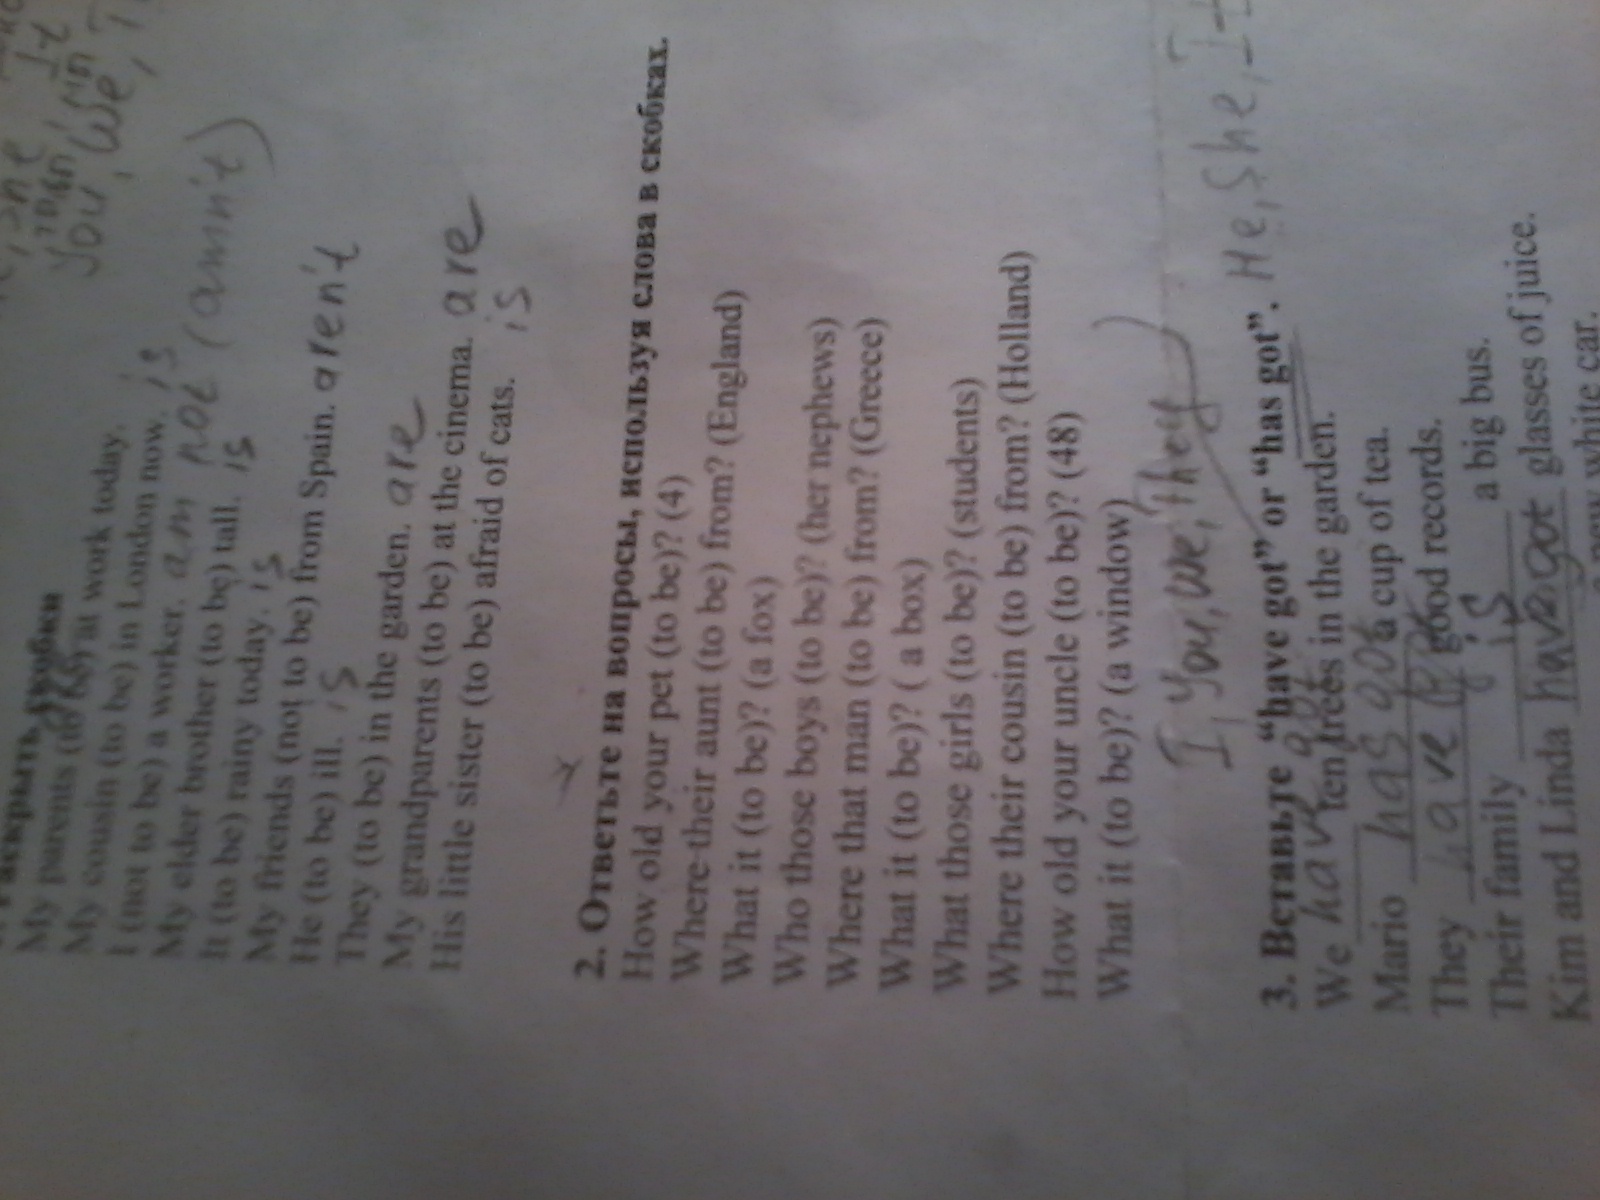 It
You, We,
скобки
My parents (to be) at work today.
My cousin (to be) in London now. is
I (not to be) a worker. am not (amn't)
My elder brother (to be) tall. is
It (to be) rainy today. is
My friends (not to be) from Spain. aren't
He (to be) ill. is
They (to be) in the garden. are
My grandparents (to be) at the cinema. are
His little sister (to be) afraid of cats. is
2. Ответьте на вопросы, используя слова в скобках.
How old your pet (to be)? (4)
Where their aunt (to be) from? (England)
What it (to be)? (a fox)
Who those boys (to be)? (her nephews)
Where that man (to be) from? (Greece)
What it (to be)? ( a box)
What those girls (to be)? (students)
Where their cousin (to be) from? (Holland)
How old your uncle (to be)? (48)
What it (to be)? (a window)
I, you, we, they
3. Вставьте "have got" or "has got". He, She, It
We have got ten trees in the garden.
Mario has got a cup of tea.
They have good records.
Their family is a big bus.
Kim and Linda have got glasses of juice.
a new white car.